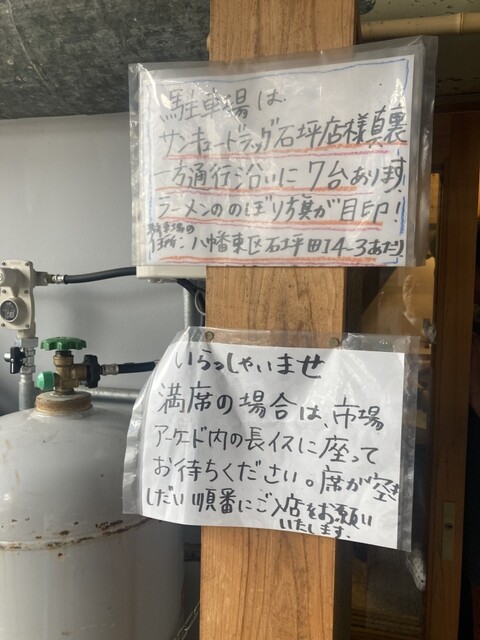 駐車場は、
サンキュードラッグ石坪店様真裏
一方通行沿いに7台あります
ラーメンののぼり旗が目印！
駐車場の
住所:八幡東区石坪町14-3あたり
いらっしゃいませ
満席の場合は、市場
アーケード内の長イスに座って
お待ちください。席が空き
しだい順番にご入店をお願い
いたします。